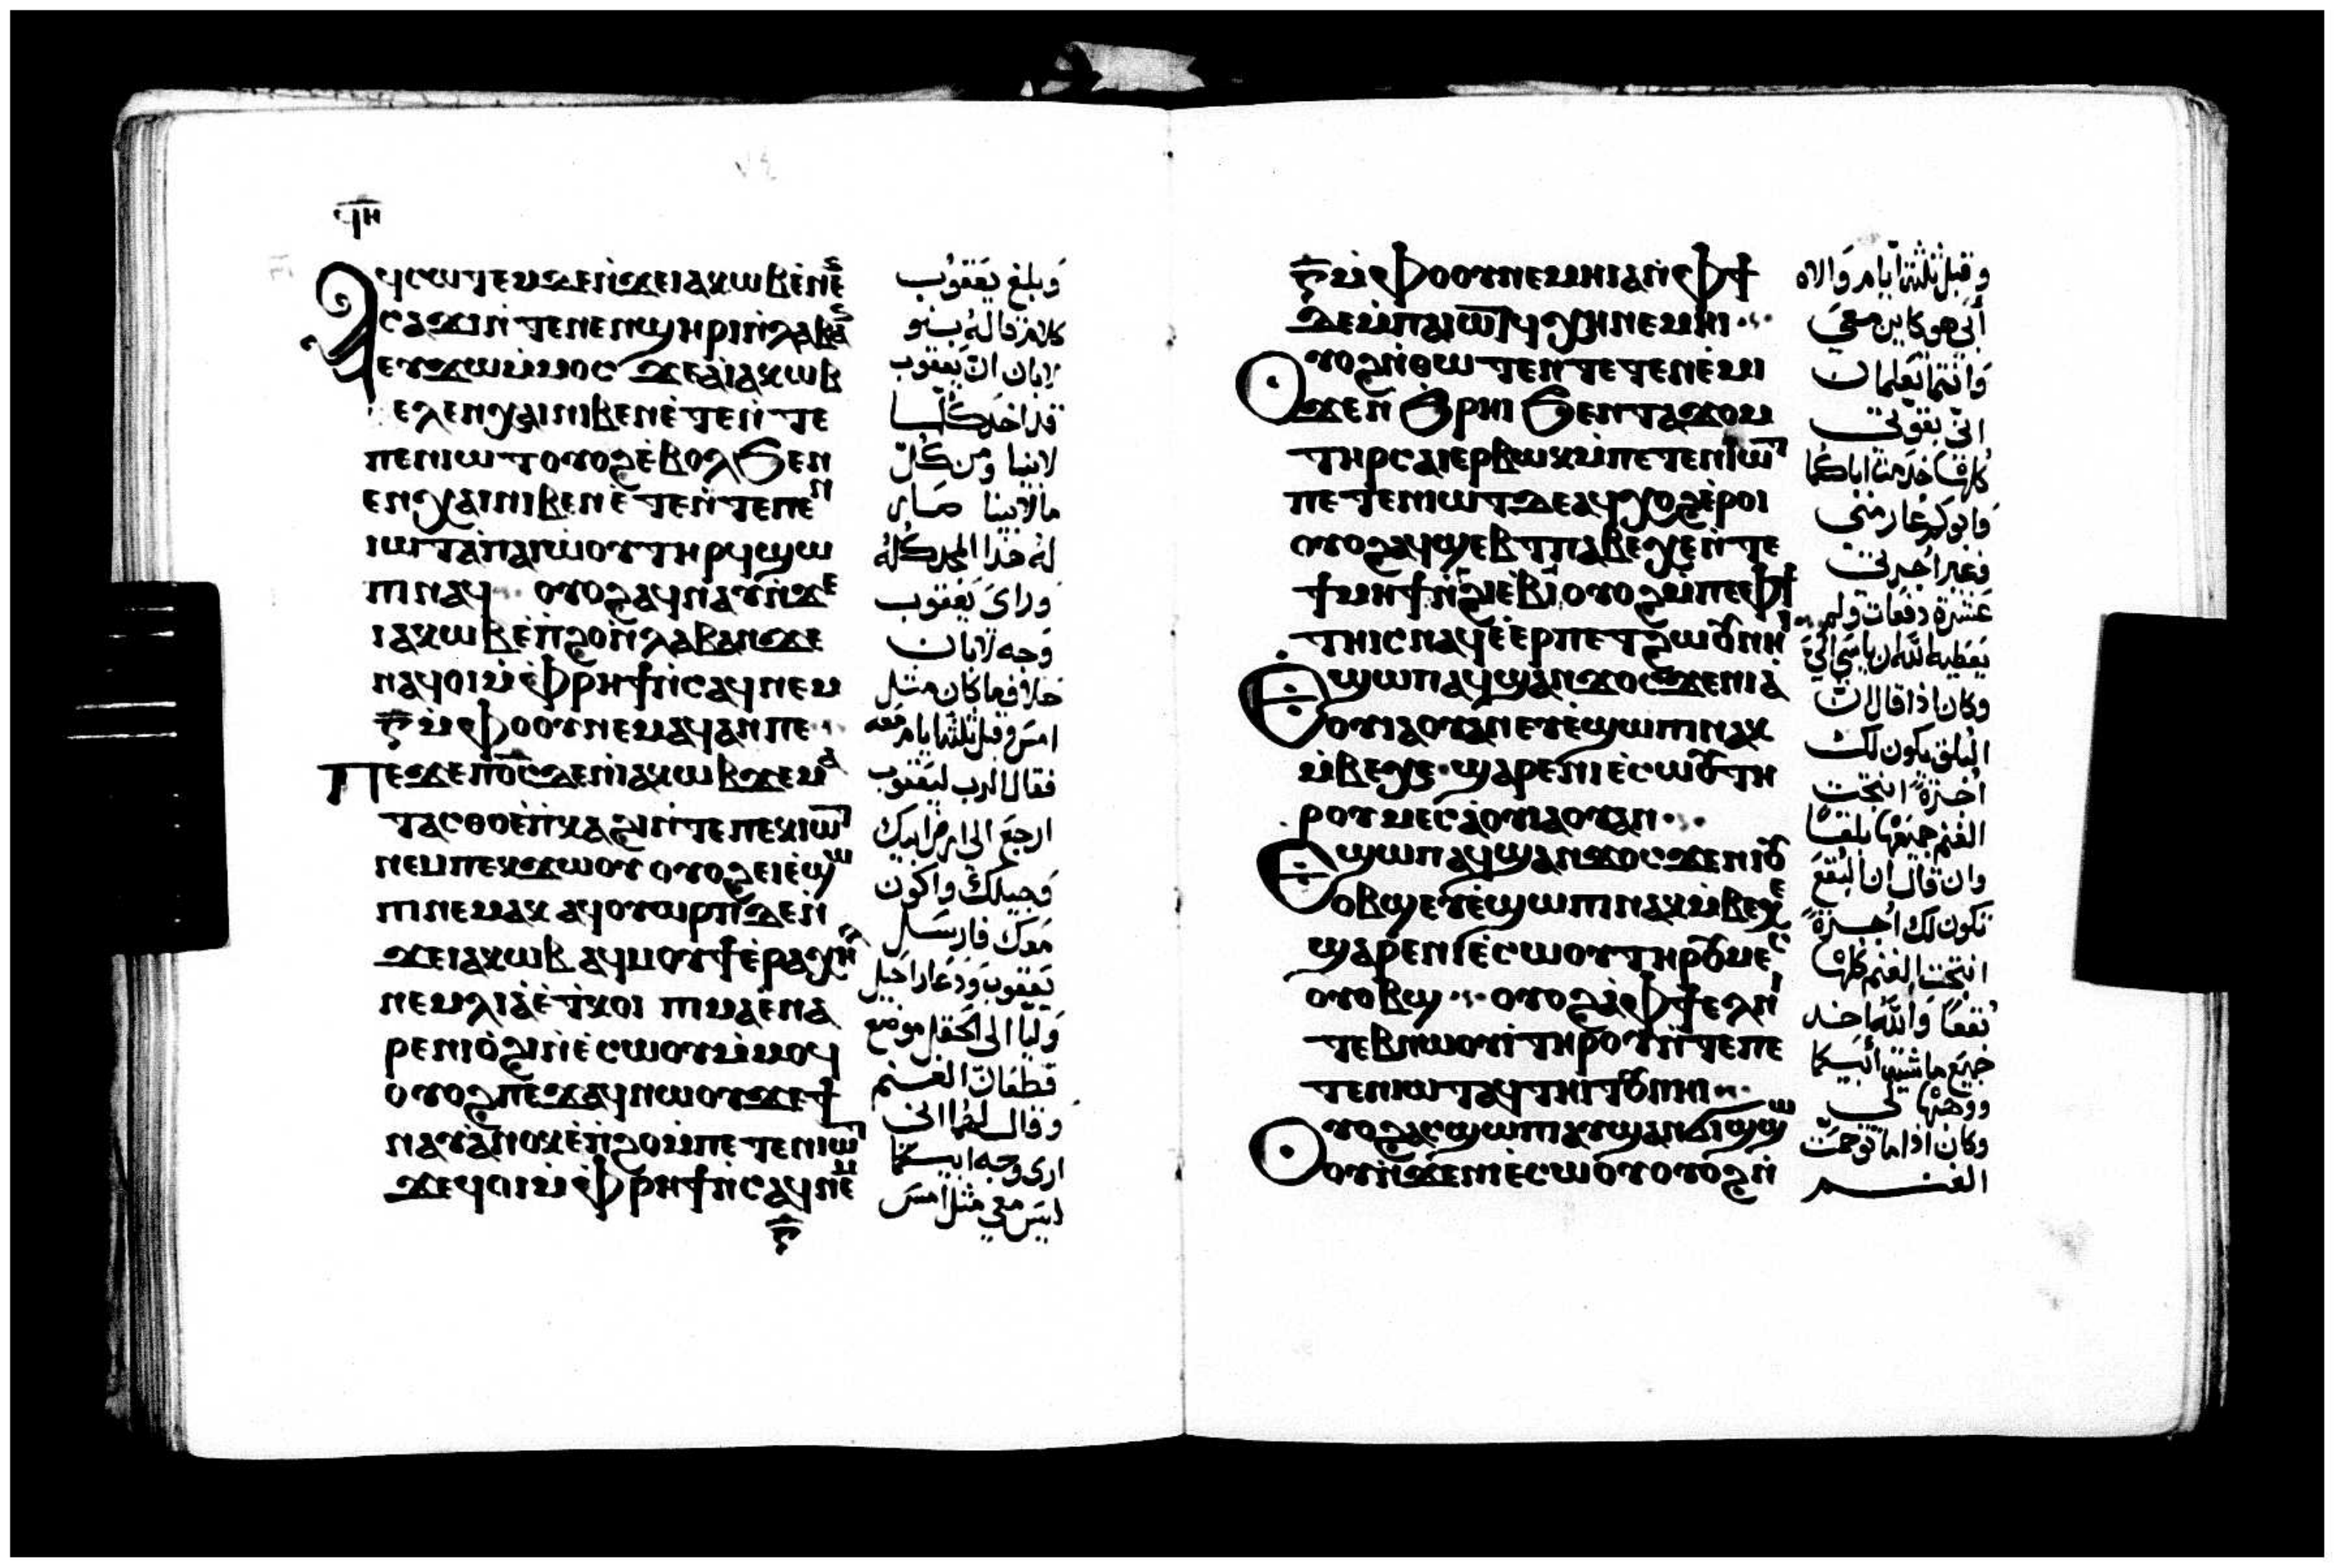 ϥⲏ
Ⲁϥⲥⲱⲧⲉⲙ ϫⲉⲛ̇ϫⲉ ⲓⲁⲕⲱⲃ ⲉ̇ⲛⲉ
ⲥⲁϫⲓ ⲛ̇ⲧⲉ ⲛⲉⲛϣⲏⲣⲓ ⲛ̇ⲗⲁⲃⲁ
ⲉⲩϫⲱ ⲙ̇ⲙⲟⲥ ϫⲉ ⲁ̇ ⲓⲁⲕⲱⲃ
ⲉⲗ ⲉⲛⲭⲁⲓ ⲛⲓⲃⲉⲛ ⲉ̇ⲧⲉⲛ̇ⲧⲉ
ⲡⲉⲛⲓⲱⲧ ⲟⲩⲟϩ ⲉ̇ⲃⲟⲗ ϧⲉⲛ
ⲉⲛⲭⲁⲓ ⲛⲓⲃⲉⲛ ⲉ̇ⲧⲉⲛ̇ⲧⲉ ⲡⲉⲛ
ⲓⲱⲧ ⲁ̇ ⲡⲁⲓⲱ̇ⲟⲩ ⲧⲏⲣϥ ϣⲱ
ⲡⲓ ⲛⲁϥ ⲟⲩⲟϩ ⲁϥⲛⲁⲩ ⲛ̇ϫⲉ
ⲓⲁⲕⲱⲃ ⲉ̇ⲡ̇ϩⲟ ⲛ̇ⲗⲁⲃⲁⲛ ϫⲉ
ⲛⲁϥⲟⲓ ⲙ̇ⲫ̇ⲣⲏϯ ⲛ̇ⲥⲁϥ ⲛⲉⲙ
ⲅ̅ ⲙ̇ⲫ̇ⲟⲟⲩ ⲛⲉⲙⲁϥ ⲁⲛ ⲡⲉ
Ⲡⲉϫⲉ ⲡⲟ̅ⲥ̅ ϫⲉⲛ̇ⲓⲁⲕⲱⲃ ϫⲉ ⲙⲁ
ⲧⲁⲥⲑⲟ ⲉ̇ⲡ̇ⲕⲁϩⲓ ⲛ̇ⲧⲉ ⲡⲉⲕⲓⲱⲧ
ⲛⲉⲙ ⲡⲉⲕϫⲱⲟⲩ ⲟⲩⲟϩ ⲉⲓⲉ̇ϣⲱ
ⲡⲓ ⲛⲉⲙⲁⲕ ⲁϥⲟⲩⲱⲣⲡ ϫⲉⲛ̇
ϫⲉ ⲓⲁⲕⲱⲃ ⲁϥⲙⲟⲩϯ ⲉ̇ⲣⲁⲭⲏⲗ
ⲛⲉⲙ ⲗⲓⲁ̇ ⲉ̇ⲧ̇ⲕⲟⲓ ⲡⲓⲙⲁ ⲉ̇ⲛⲁ
ⲣⲉ ⲛⲓⲟ̇ϩⲓ ⲛ̇ⲉ̇ⲥⲱⲟⲩ ⲙ̇ⲙⲟϥ
ⲟⲩⲟϩ ⲡⲉϫⲁϥ ⲛⲱⲟⲩ ϫⲉ ϯ
ⲛⲁⲩ ⲁ̇ⲛⲟⲕ ⲉ̇ⲡ̇ϩⲟ ⲙ̇ⲡⲉⲧⲉⲛⲓⲱⲧ
ϫⲉ ϥⲟⲓ ⲙ̇ⲫ̇ⲣⲏϯ ⲛ̇ⲥⲁϥ ⲛⲉⲙ
ⲅ̅
وبلغ يعقوب
كلامر قاله بنو
لابان ان يعقوب
قد اخد كلما
لابينا ومن كل
مالابينا صار
له هذا المجد كله
وراى يعقوب
وجه لابان
خلاف ما كان مثل
امس وقبل ثلثه ايامر معه
فقال الرب ليعقوب
ارجع الى ارض ابيك
وجيلك واكون
معك فارسل
يعقوب ودعا راحيل
وليا الى الحقل موضع
قطعان الغنم
وقال لهما انى
ارى وجه ابيكما
ليس معي مثل امس
ⲅ̅ ⲙ̇ⲫ̇ⲟⲟⲩ ⲛⲉⲙⲏⲓ ⲁⲛ ⲫϯ
ϫⲉ ⲙ̇ⲡⲁⲓⲱⲧ ϥⲭⲏ ⲛⲉⲙⲏⲓ
Ⲟⲩⲟϩ ⲛ̇ⲑⲱⲧⲉⲛ ⲧⲉⲧⲉⲛⲉ̇ⲙⲓ
ϫⲉⲛ̇ϩ̇ⲣⲏⲓ ϧⲉⲛ ⲧⲁϫⲟⲙ
ⲧⲏⲣⲥ ⲁⲓⲉⲣⲃⲱⲕ ⲙ̇ⲡⲉⲧⲉⲛⲓⲱⲧ
ⲡⲉⲧⲉⲛⲓⲱⲧ ϫⲉ ⲁϥⲭⲟϩ ⲉ̇ⲣⲟⲓ
ⲟⲩⲟϩ ⲁϥϣⲉⲃⲧ ⲡⲁⲃⲉⲭⲉ ⲛ̇ⲧⲉ
ϯⲙⲏϯ ⲛ̇ϩⲓⲉⲃⲓ ⲟⲩⲟϩ ⲙ̇ⲡⲉ ⲫϯ
ⲧⲏⲓⲥ ⲛⲁϥ ⲉ̇ⲉⲣⲡⲉⲧϩⲱⲟⲩ ⲛⲏⲓ
Ⲉϣⲱⲡ ⲁϥϣⲁⲛϫⲟⲥ ϫⲉ ⲛⲓⲁ
ⲟⲩⲓⲁⲟⲩⲁⲛ ⲉⲩⲉ̇ϣⲱⲡⲓ ⲛⲁⲕ
ⲙ̇ⲃⲉⲭⲉ ϣⲁⲣⲉ ⲛⲓⲉ̇ⲥⲱⲟⲩ ⲧⲏ
ⲣⲟⲩ ⲙⲉⲥ ⲁ̇ⲟⲩⲓⲁⲟⲩⲁⲛ
Ⲉϣⲱⲡ ⲁϥϣⲁⲛϫⲟⲥ ϫⲉ ⲛⲓⲟⲩ
ⲟⲃϣ ⲉⲩⲉ̇ϣⲱⲡⲓ ⲛⲁⲕ ⲙ̇ⲃⲉⲭⲉ
ϣⲁⲣⲉ ⲛⲓⲉ̇ⲥⲱⲟⲩ ⲧⲏⲣⲟⲩ ⲙⲉⲥ
ⲟⲩⲟⲃϣ ⲟⲩⲟϩ ⲁ̇ ⲫϯ ⲉⲗ ⲛⲓ
ⲧⲉⲃⲛⲱⲟⲩⲓ ⲧⲏⲣⲟⲩ ⲛ̇ⲧⲉ ⲡⲉ
ⲧⲉⲛⲓⲱⲧ ⲁϥⲧⲏⲓⲧⲟⲩ ⲛⲏⲓ
Ⲟⲩⲟϩ ⲁⲥϣⲱⲡⲓ ⲁⲩϣⲁⲛϭⲓϣϣⲱ
ⲟⲩ ⲛ̇ϫⲉ ⲛⲓⲉ̇ⲥⲱⲟⲩ ⲟⲩⲟϩ ⲛ̇
وقبل ثلثة ايامر والاه
أبى هو كاين معى
وانتما تعلمان
انى بقوتى
كلها خدمت اباكما
وابوكما غار منى
وغير اجرتى
عشرة دفعات ولم
يعطيه الله ان ياسى الي
وكان اذا قال ان
البلق يكون لك
اجرة انتجت
الغنم جميعها بلقا
وان قال ان البقع
تكون لك اجرة
انتجت الغنم كلها
بقعا والله اخد
جميع ماشية ابيكما
ووهبها لى
وكان اذا ما توحمت
الغنم